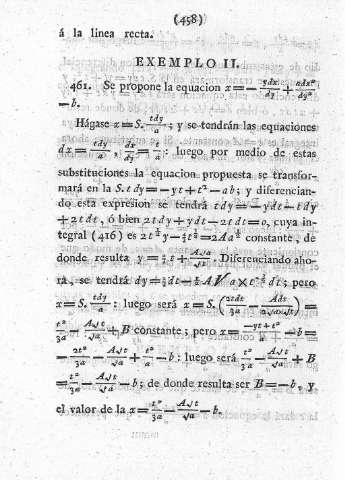 (458)
á la linea recta.
EXEMPLO II.
461. Se propone la equacion x=−ydx/dy+adx²/dy²
−b.
Hágase x=S.tdy/a; y se tendrán las equaciones
dx=tdy/a, dx/dy=t/a: luego por medio de estas
substituciones la equacion propuesta se transfor-
mará en la S.tdy=−yt+t²−ab; y diferencian-
do esta expresion se tendrá tdy=−ydt−tdy
+2tdt, ó bien 2tdy+ydt−2tdt=0, cuya in-
tegral (416) es 2t½y−4/3t³/²=2Aa½ constante, de
donde resulta y=⅔t+A√a/√t. Diferenciando aho-
ra, se tendrá dy=⅔dt−½A√a×t⁻³/²dt; pero
x=S.tdy/a: luego será x=S.(2tdt/3a−Adt/2√a√t)=
t²/3a−A√t/√a+B constante; pero x=−yt+t²/a−b=
−2t²/3a−A√t/√a+t²/a−b: luego será t²/3a−A√t/√a+B
=t²/3a−A√t/√a−b; de donde resulta ser B=−b, y
el valor de la x=t²/3a−A√t/√a−b.